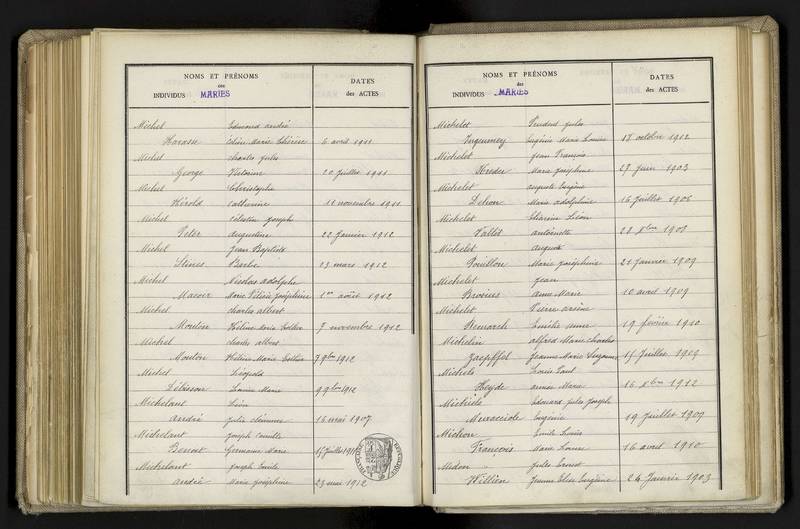 NOMS ET PRÉNOMS
des
INDIVIDUS MARIES
DATES
des ACTES
Michel Edmond André
Harasse Marie Thérèse 6 avril 1911
Michel Charles Jules
George Victorine 20 Juillet 1911
Michel Christophe
Hérold Catherine 11 novembre 1911
Michel Célestin Joseph
Peter Augustine 22 Janvier 1912
Michel Jean Baptiste
Stines Barbe 23 mars 1912
Michel Nicolas Adolphe
Marie Joséphine 1er août 1912
Michel Charles Albert
Mouton Hélène Marie 7 novembre 1912
Michel Charles Albert
Mouton Hélène Marie 7 9bre 1912
Michel Léopold
Louise Marie 9 9bre 1912
Michelant Léon
André Julie 16 mai 1907
Michelant Joseph Camille
Benoit Germaine Marie 15 Juillet
Michelant Joseph Emile
André Marie Joséphine 23 mai 1912
NOMS ET PRÉNOMS
des
INDIVIDUS MARIES
DATES
des ACTES
Michelet Prudent Jules
Eugénie Marie Louise 18 octobre 1912
Michelet Jean François
Kreder Marie Joséphine 27 Juin 1903
Michelet Auguste Eugène
Dehon Marie Adolphine 16 Juillet 1906
Michelet Léon
Vallet Antoinette 22 Xbre 1908
Michelet August
Pouillon Marie Joséphine 21 Janvier 1909
Michelet Jean
Anne Marie 10 avril 1909
Michelet Pierre Arsène
Remarch Emélie Anne 19 février 1910
Michelin Alfred Marie Charles
Zaepffel Jeanne Marie 15 Juillet 1909
Michels Louis Paul
Heyde Marie 16 Xbre 1912
Edouard Jules Joseph
Muracciole Eugénie 19 Juillet 1909
Michon Emile Louis
François Marie Louise 16 avril 1910
Midon Jules Ernest
Willien Jeanne Elise Eugénie 24 Janvier 1903